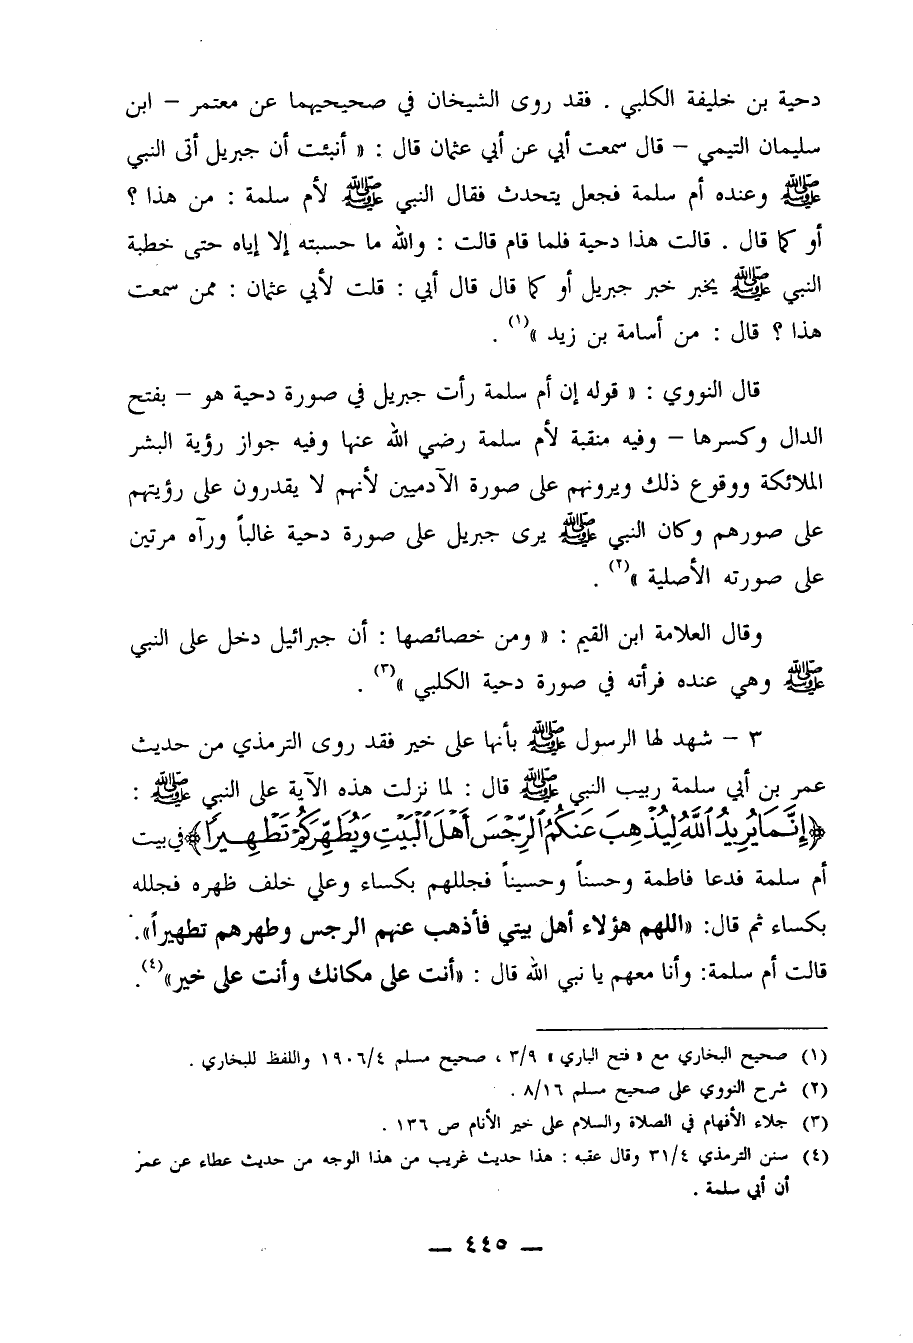 دحية بن خليفة الكلبي . فقد روى الشيخان في صحيحيهما عن معتمر – ابن
سليمان التيمي – قال سمعت أبي عن أبي عثمان قال : « أنبئت أن جبريل أتى النبي
ﷺ وعنده أم سلمة فجعل يتحدث فقال النبي ﷺ لأم سلمة : من هذا ؟
أو كما قال . قالت هذا دحية فلما قام قالت : والله ما حسبته إلا إياه حتى خطبة
النبي ﷺ يخبر خبر جبريل أو كما قال قال أبي : قلت لأبي عثمان : ممن سمعت
هذا ؟ قال : من أسامة بن زيد »(١) .
قال النووي : « قوله إن أم سلمة رأت جبريل في صورة دحية هو – بفتح
الدال وكسرها – وفيه منقبة لأم سلمة رضي الله عنها وفيه جواز رؤية البشر
الملائكة ووقوع ذلك ويرونهم على صورة الآدميين لأنهم لا يقدرون على رؤيتهم
على صورهم وكان النبي ﷺ يرى جبريل على صورة دحية غالباً ورآه مرتين
على صورته الأصلية »(٢) .
وقال العلامة ابن القيم : « ومن خصائصها : أن جبرائيل دخل على النبي
ﷺ وهي عنده فرأته في صورة دحية الكلبي »(٣) .
٣ – شهد لها الرسول ﷺ بأنها على خير فقد روى الترمذي من حديث
عمر بن أبي سلمة ربيب النبي ﷺ قال : لما نزلت هذه الآية على النبي ﷺ :
﴿إِنَّمَا يُرِيدُ اللَّهُ لِيُذْهِبَ عَنكُمُ الرِّجْسَ أَهْلَ الْبَيْتِ وَيُطَهِّرَكُمْ تَطْهِيرًا﴾ في بيت
أم سلمة فدعا فاطمة وحسناً وحسيناً فجللهم بكساء وعلي خلف ظهره فجلله
بكساء ثم قال: «اللهم هؤلاء أهل بيتي فأذهب عنهم الرجس وطهرهم تطهيراً».
قالت أم سلمة: وأنا معهم يا نبي الله قال : «أنت على مكانك وأنت على خير»(٤).
(١) صحيح البخاري مع « فتح الباري » ٣/٩ ، صحيح مسلم ١٩٠٦/٤ واللفظ للبخاري .
(٢) شرح النووي على صحيح مسلم ٨/١٦ .
(٣) جلاء الأفهام في الصلاة والسلام على خير الأنام ص ١٣٦ .
(٤) سنن الترمذي ٣١/٤ وقال عقبه : هذا حديث غريب من هذا الوجه من حديث عطاء عن عمر
أن أبي سلمة .
— ٤٤٥ —